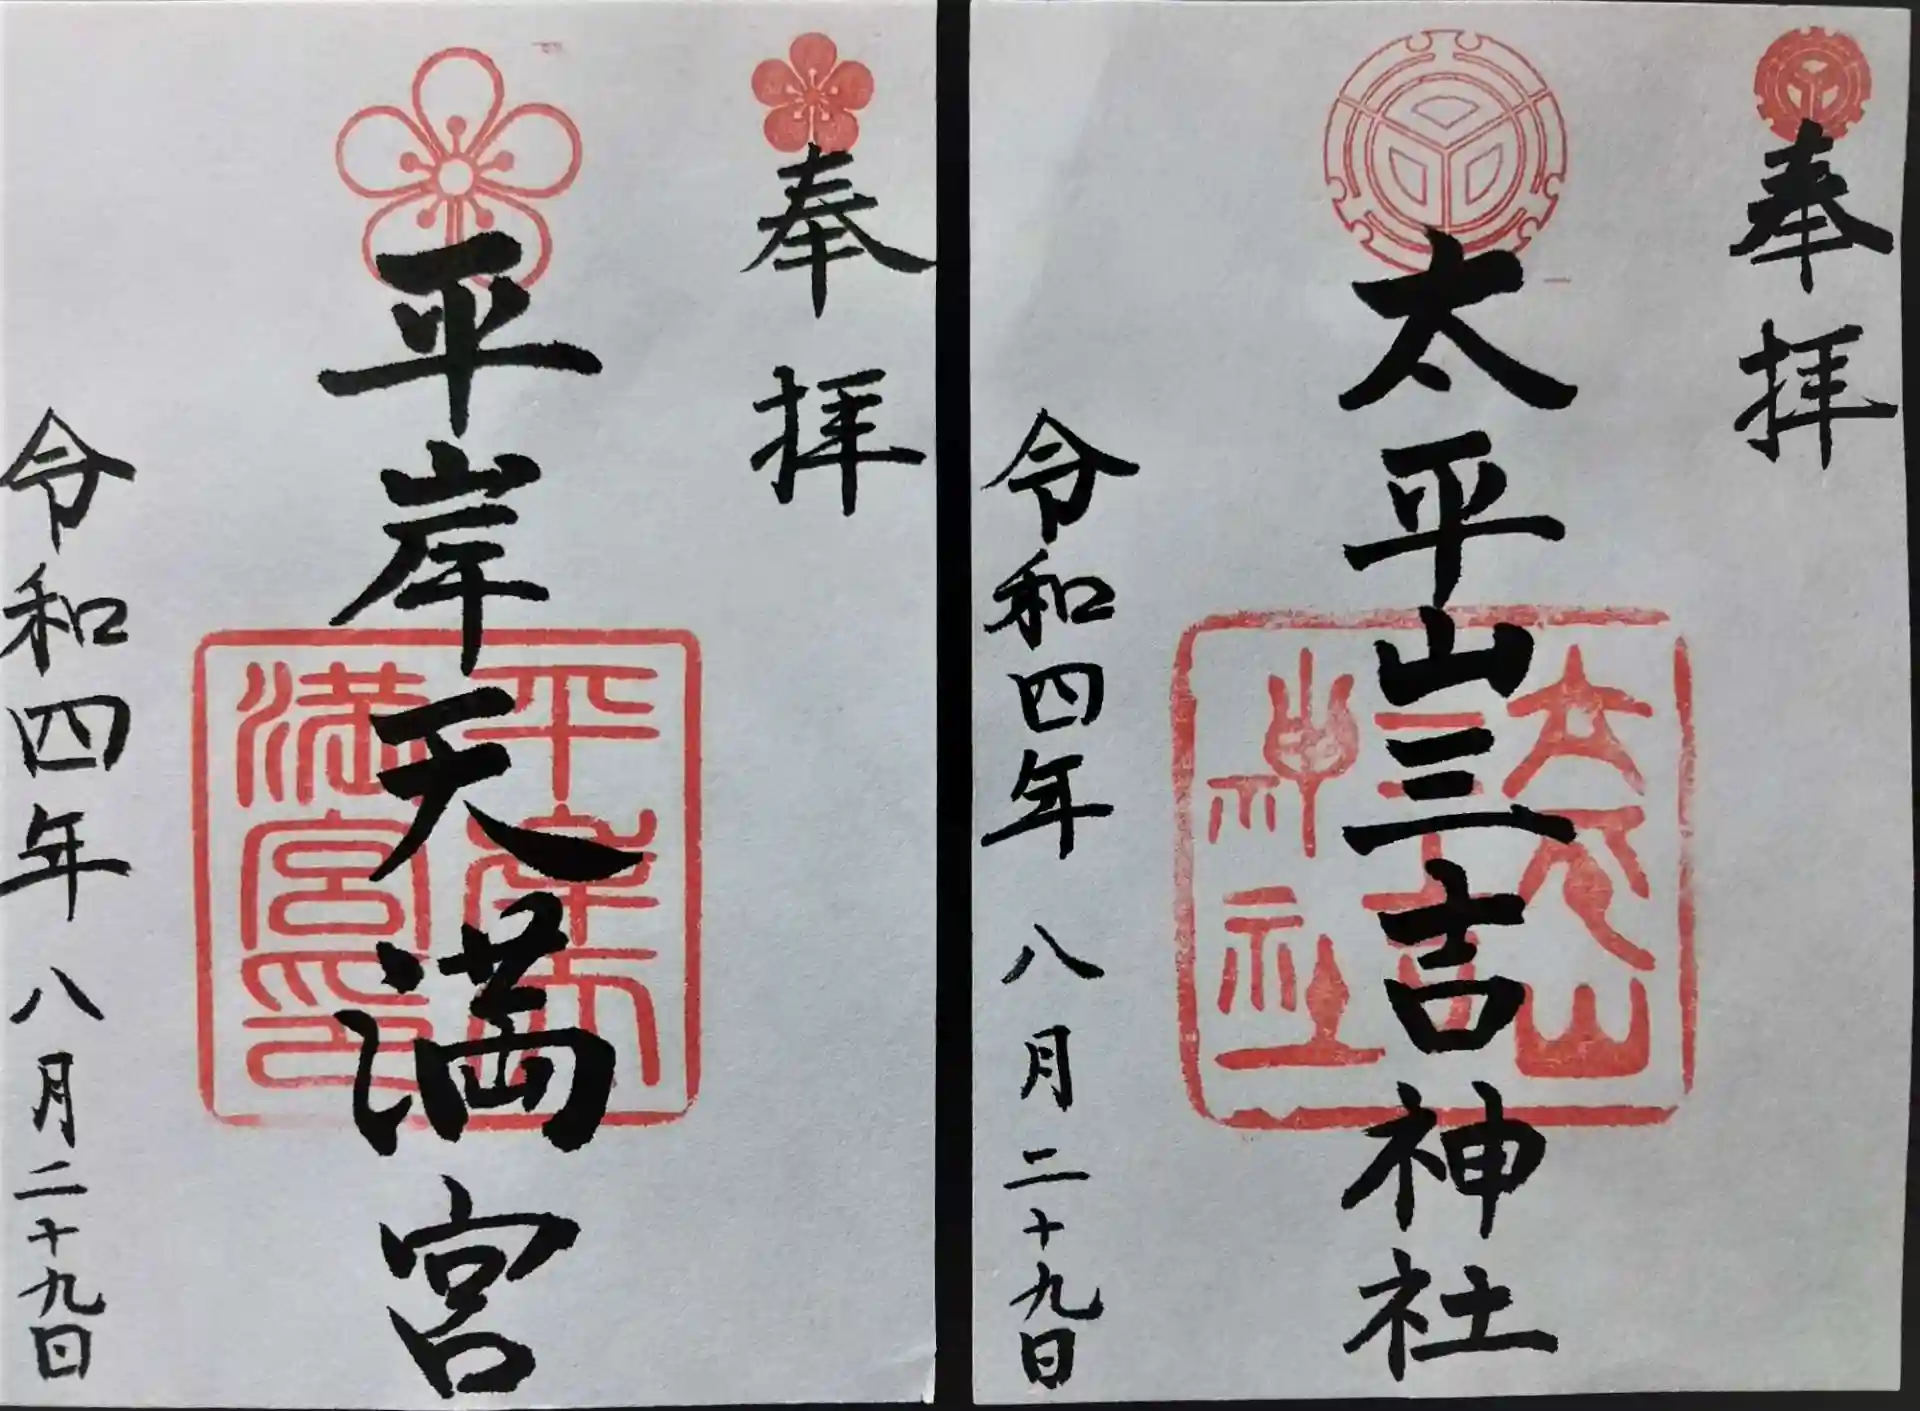 奉拝
太平山三吉神社
令和四年八月二十九日
太平山
三吉
神社
奉拝
平岸天満宮
令和四年八月二十九日
平岸天
満宮印